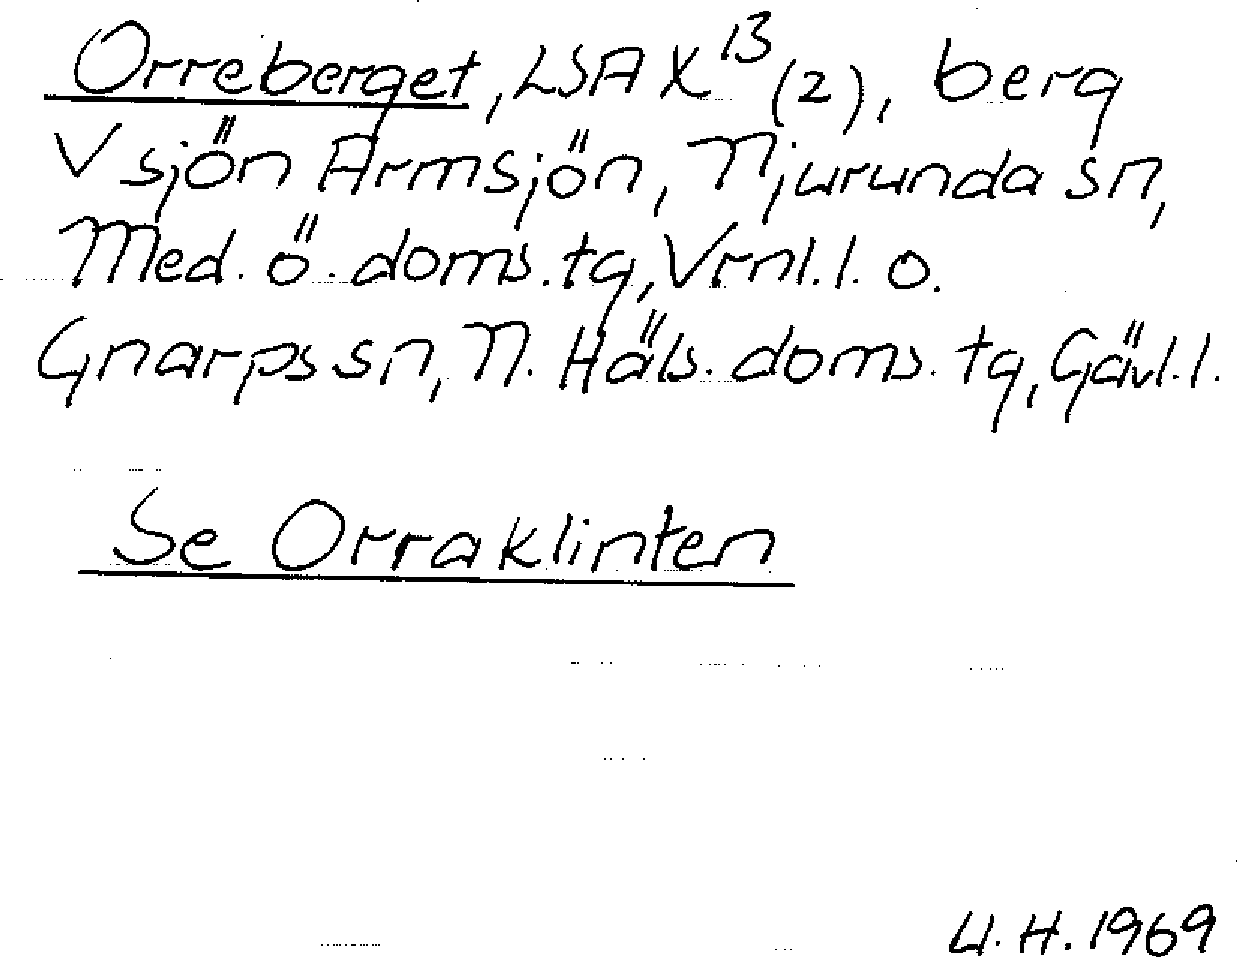 Orreberget, LSA X¹³ (2), berg
V sjön Armsjön, Njurunda sn,
Med. ö. doms. tg, Vrnl. l. o.
Gnarps sn, N. Häls. doms. tg, Gävl. l.
Se Orraklinten
U. H. 1969